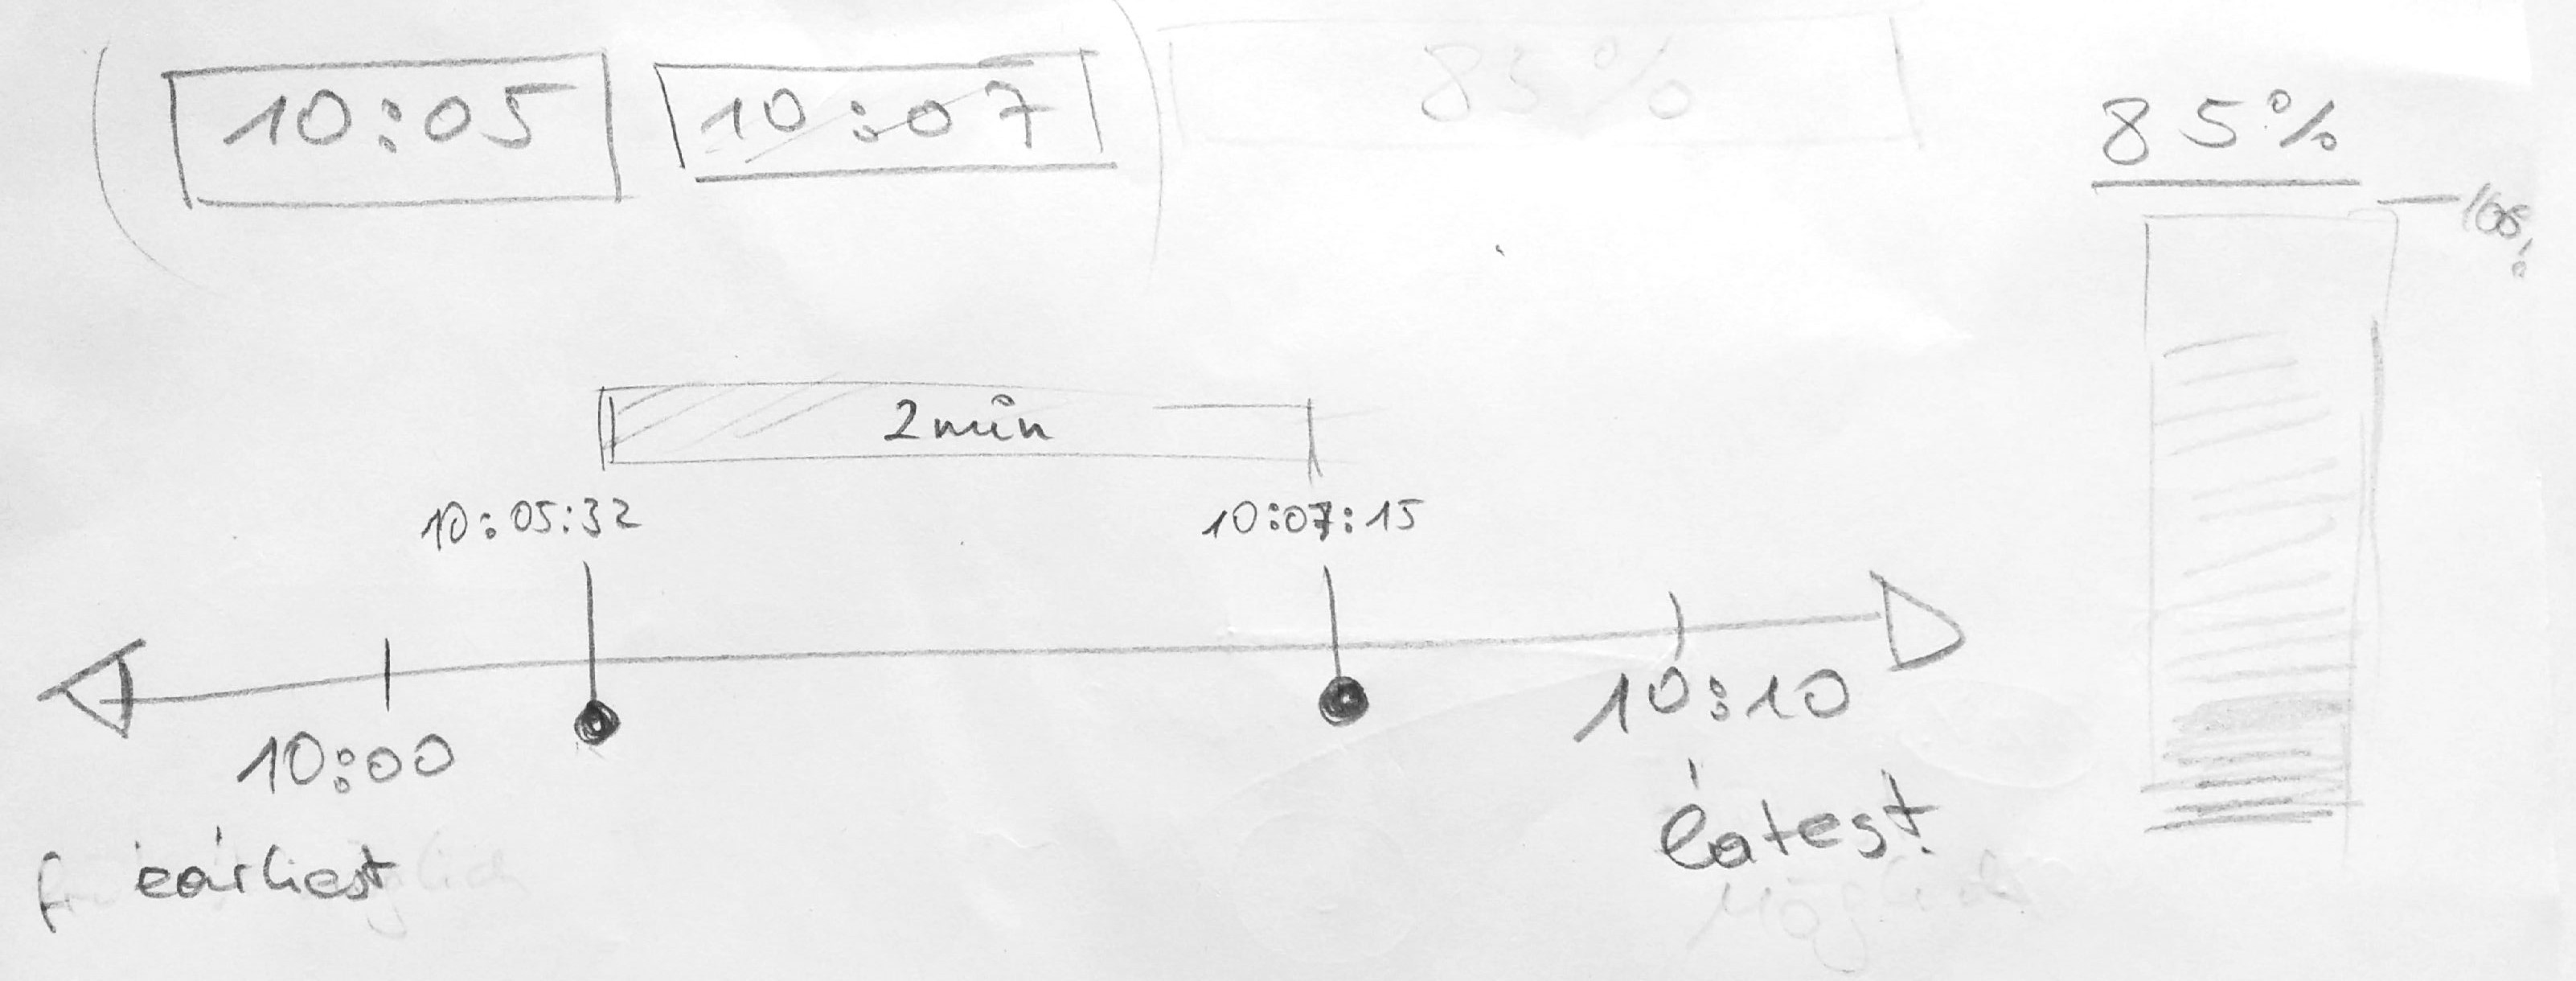 10:05 10:07 85%
85%
2min
10:05:32 10:07:15
10:00 10:10
earliest latest
möglich